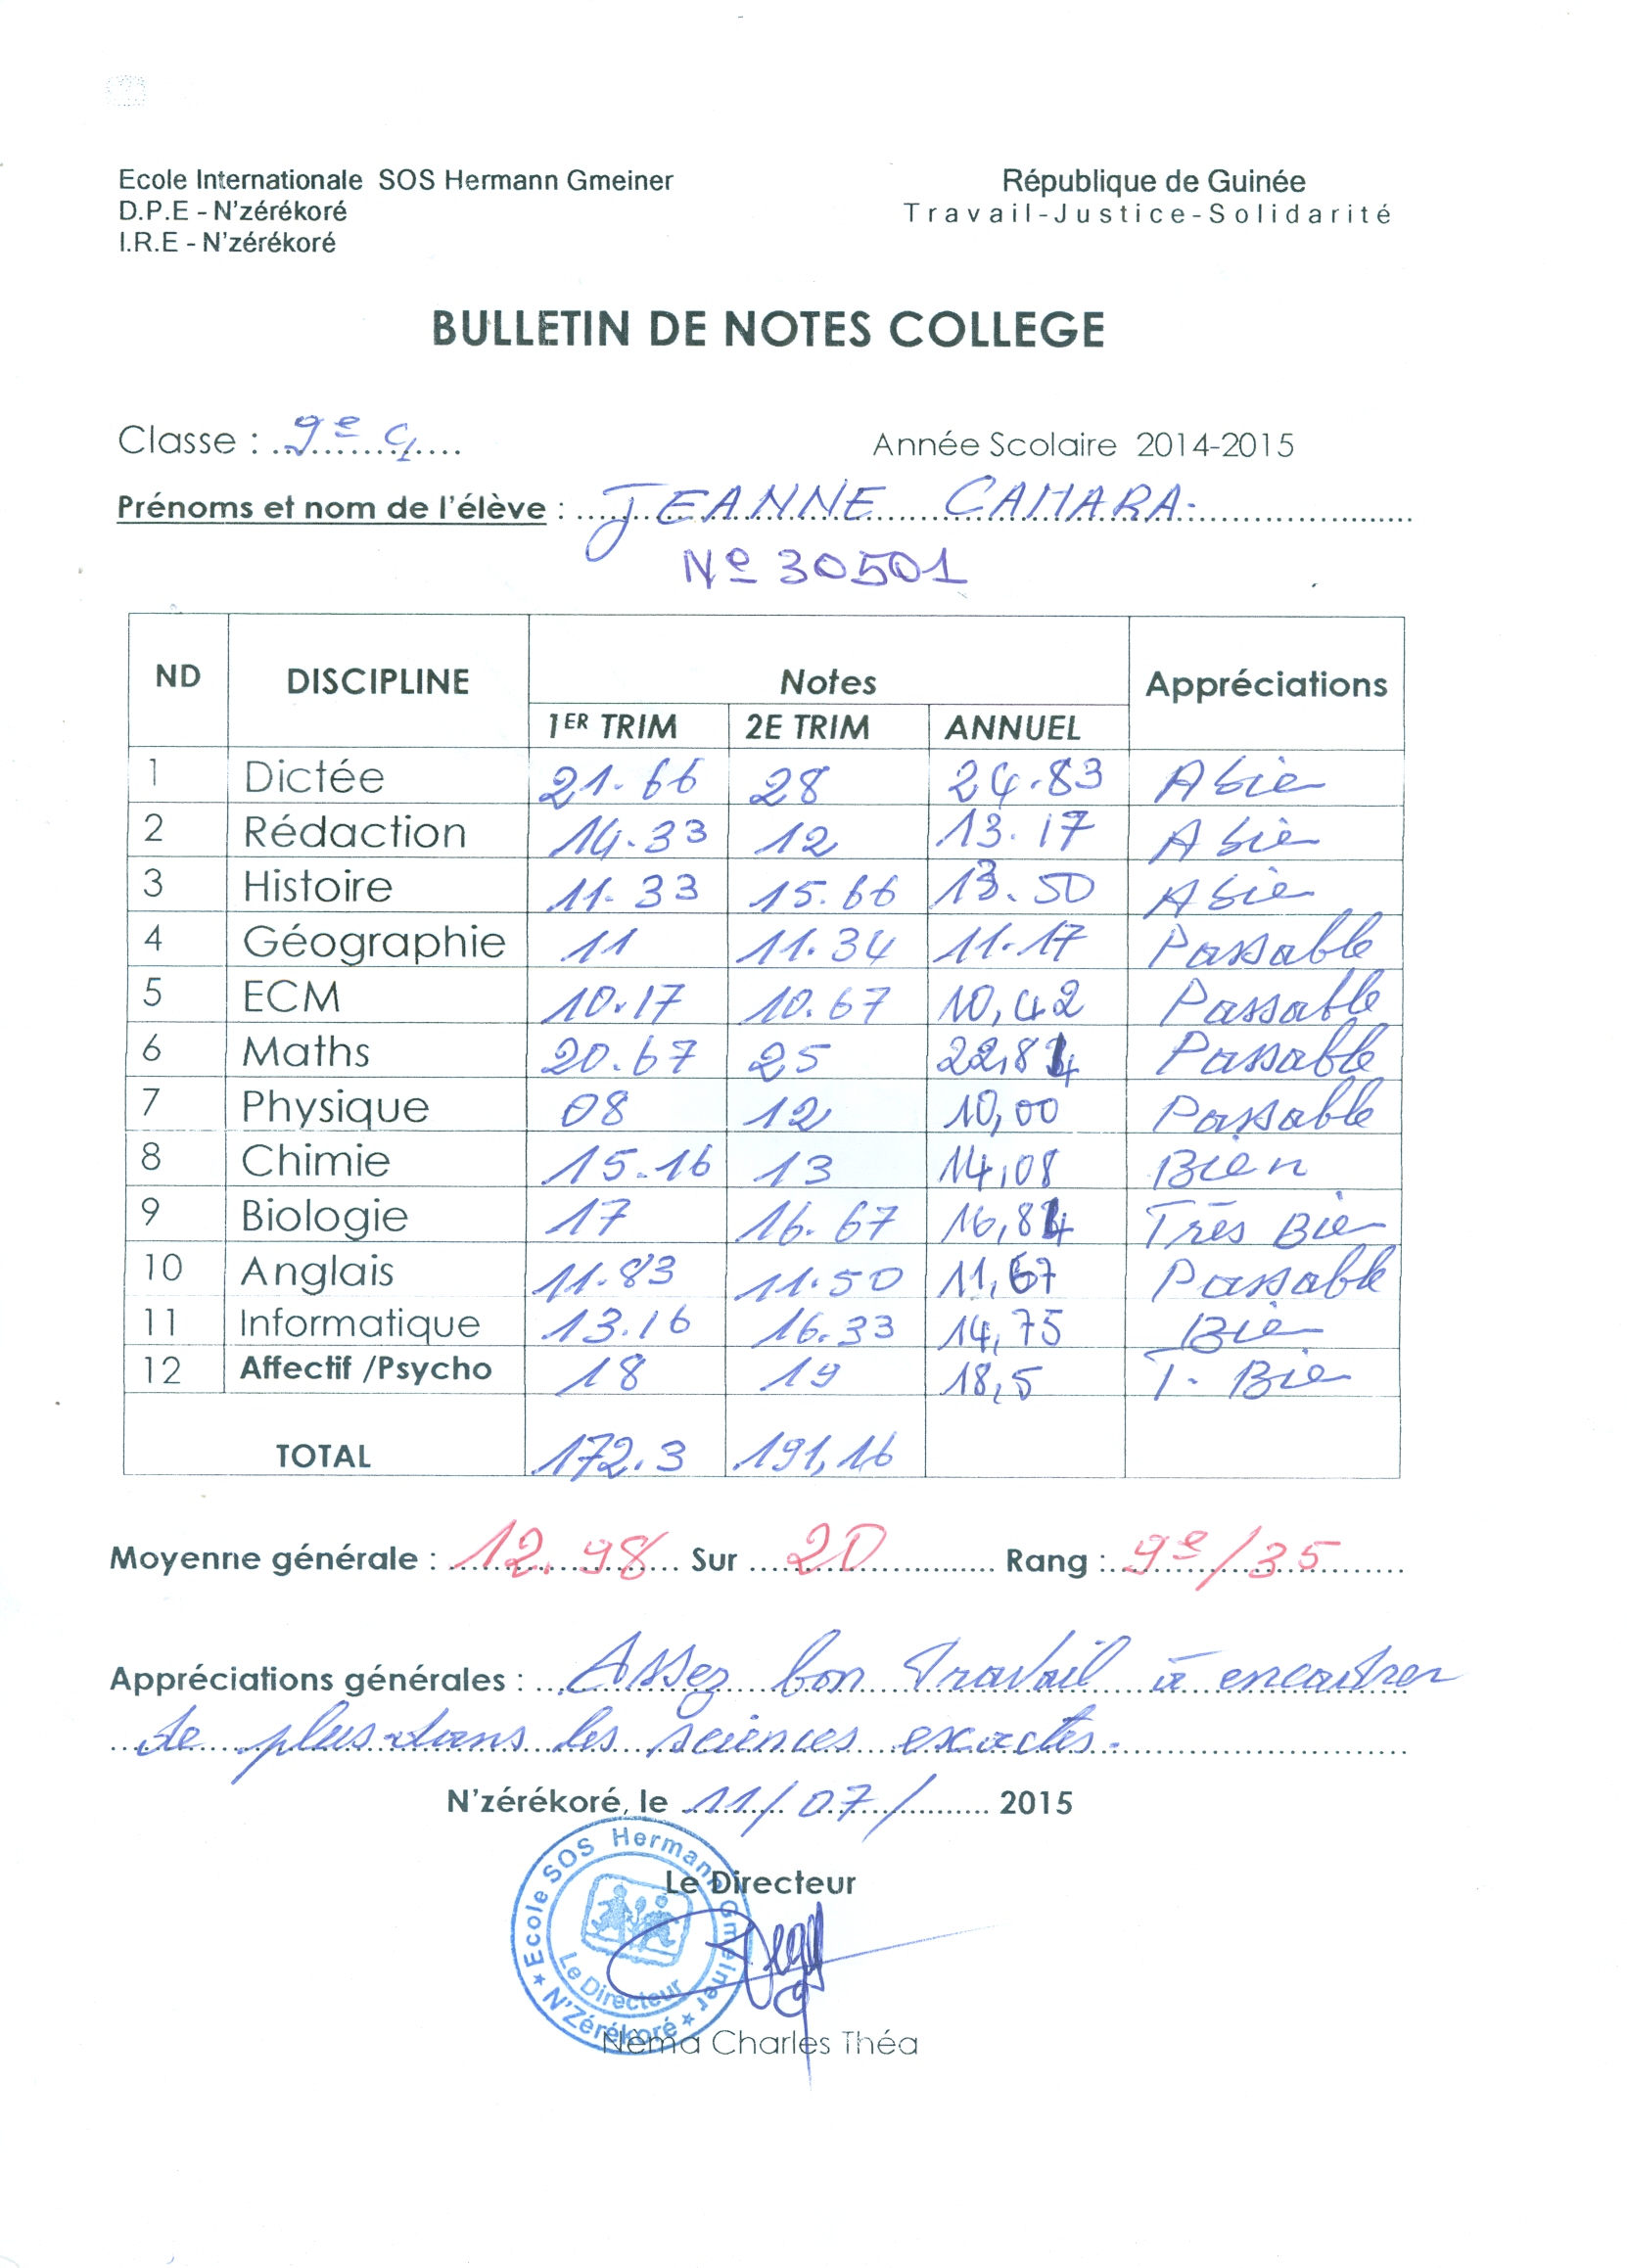 Ecole Internationale SOS Hermann Gmeiner
D.P.E - N'zérékoré
I.R.E - N'zérékoré
République de Guinée
Travail-Justice-Solidarité
BULLETIN DE NOTES COLLEGE
Classe : 9e
Année Scolaire 2014-2015
Prénoms et nom de l'élève : JEANNE CAMARA.
Nº 30501
ND DISCIPLINE Notes Appréciations
1ER TRIM 2E TRIM ANNUEL
1 Dictée 21.66 28 24.83 A bie
2 Rédaction 14.33 12 13.17 A bie
3 Histoire 11.33 15.66 13.50 A bie
4 Géographie 11 11.34 11.17 Passable
5 ECM 10.17 10.67 10,42 Passable
6 Maths 20.67 25 22,84 Passable
7 Physique 08 12 10,00 Passable
8 Chimie 15.16 13 14,08 Bien
9 Biologie 17 16.67 16,84 Très Bie
10 Anglais 11.83 11.50 11,67 Passable
11 Informatique 13.16 16.33 14,75 Bie
12 Affectif /Psycho 18 19 18,5 T. Bie
TOTAL 172.3 191,16
Moyenne générale : 12.98 Sur 20 Rang : 9e/35
Appréciations générales : Assez bon travail à
de plus dans les sciences exactes.
N'zérékoré, le 11/07/ 2015
Le Directeur
Ecole SOS Hermann Gmeiner
Le Directeur
N'Zérékoré
Nèma Charles Théa